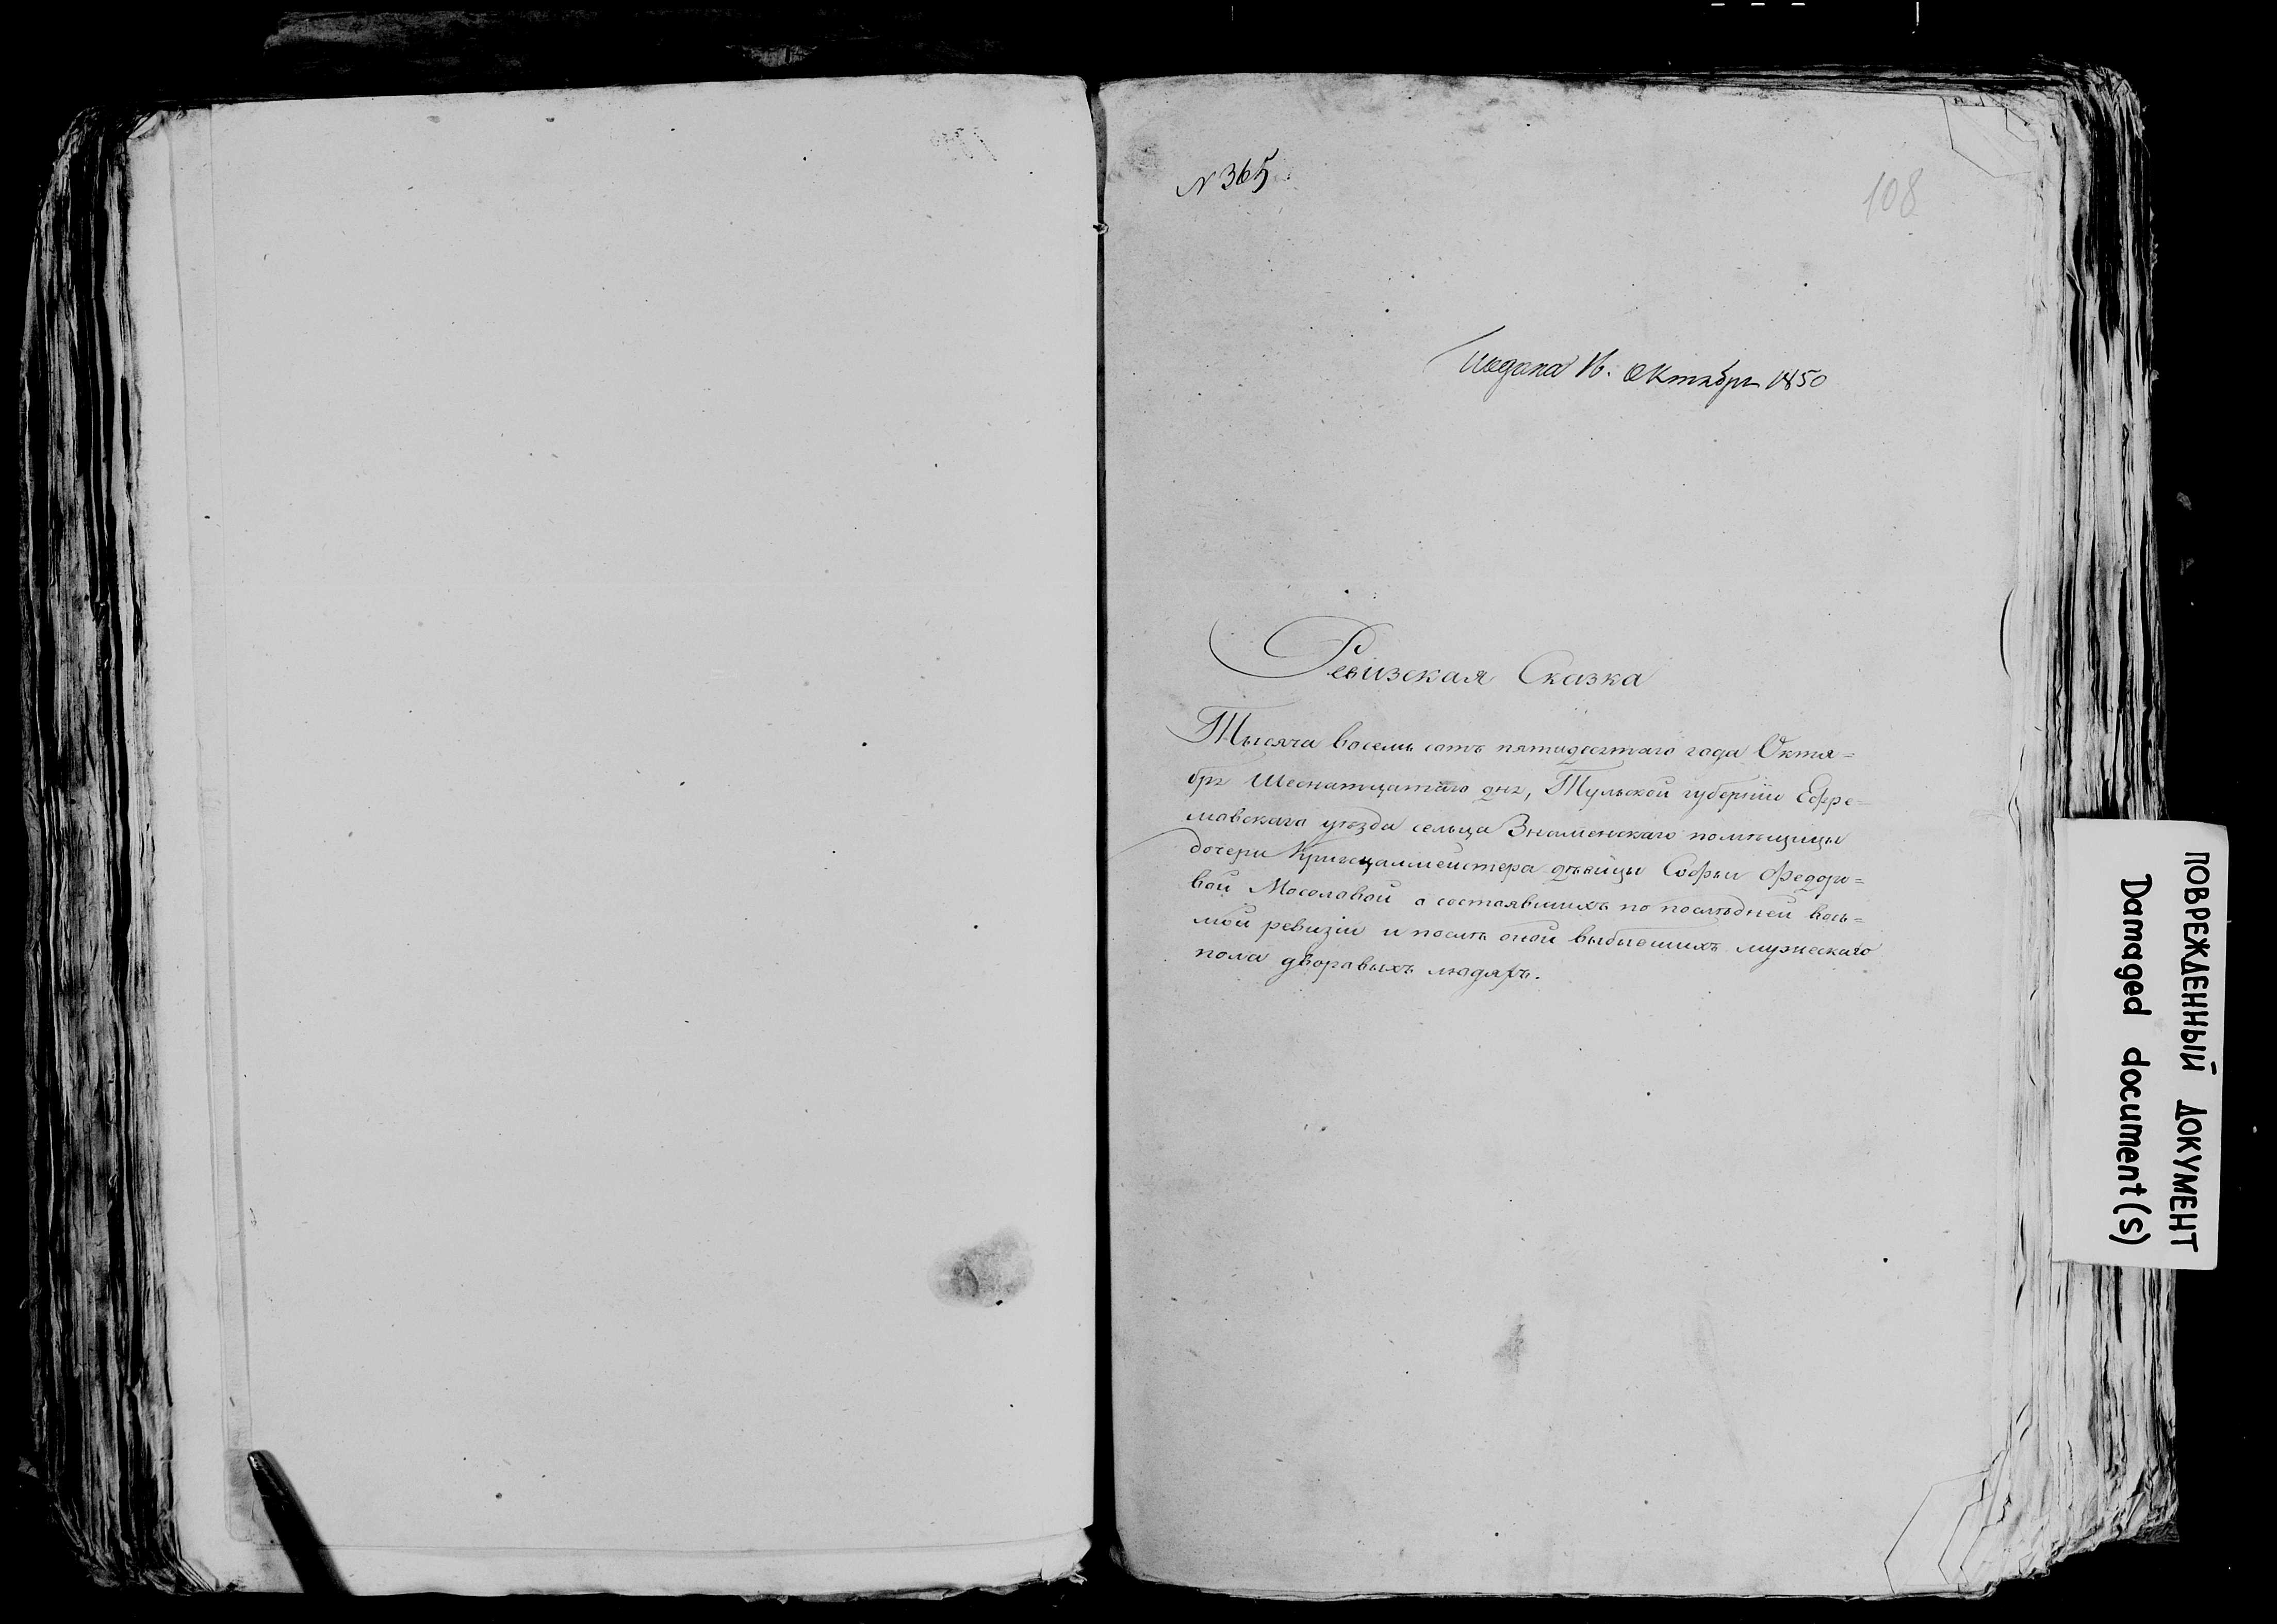 N 365
108
Подана 16. Октября 1850
Ревизская Сказка
Тысяча восемь сотъ пятидесятаго года Октя=
бря Шеснатцатаго дня, Тульской губернiи Ефре=
мовскаго уѣзда сельца Знаменскаго помѣщицы
дочери Кригсцалмейстера дѣвицы Софьи Федоро=
вой Мосоловой о состоявшихъ по послѣдней вось=
мой ревизiи и послѣ оной выбывшихъ мужескаго
пола дворовыхъ людяхъ.
ПОВРЕЖДЕННЫЙ ДОКУМЕНТ
Damaged document(s)